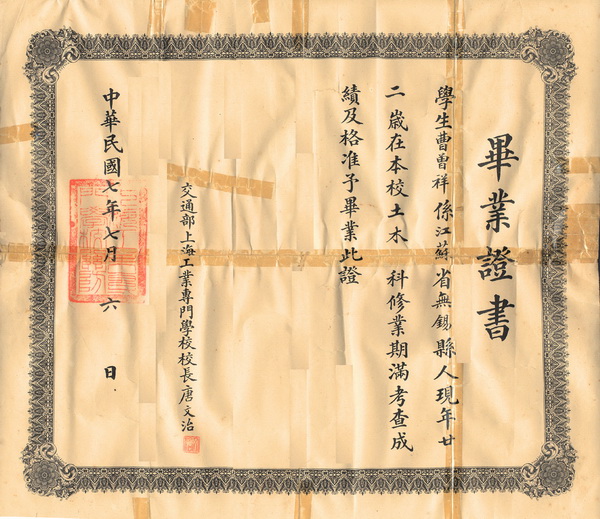 畢業證書
學生曹曾祥係江蘇省無錫縣人現年廿
二歲在本校土木 科修業期滿考查成
績及格准予畢業此證
交通部上海工業專門學校校長唐文治
中華民國七年七月 六 日